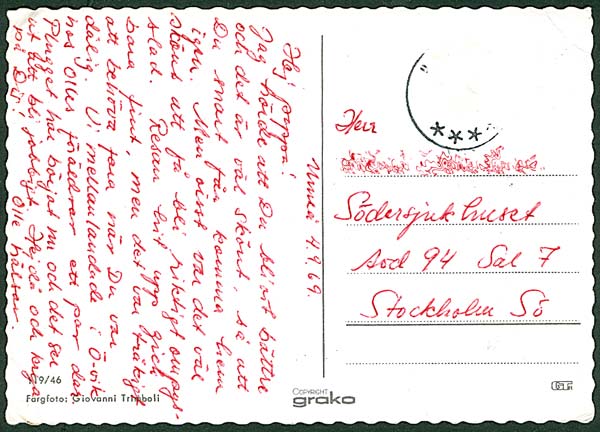 Umeå 4.9.69.
Hej pappa!
Jag hörde att Du blivit bättre
och det är väl skönt, så att
Du snart får komma hem
igen. Men visst var det väl
skönt att få bli riktigt ompys-
slad. Resan hit upp gick
bara fint, men det var tråkigt
att behöva fara när Du var
dålig. Vi mellanlandade i Ö-vik
hos Olles föräldrar ett par dar
Plugget har börjat nu och det ser
ut att bli jobbigt. Hej då och krya
på Dig! Olle hälsar.
Herr
Södersjukhuset
Avd 94 Sal 7
Stockholm Sö
119/46
Färgfoto: Giovanni Trimboli
COPYRIGHT
grako